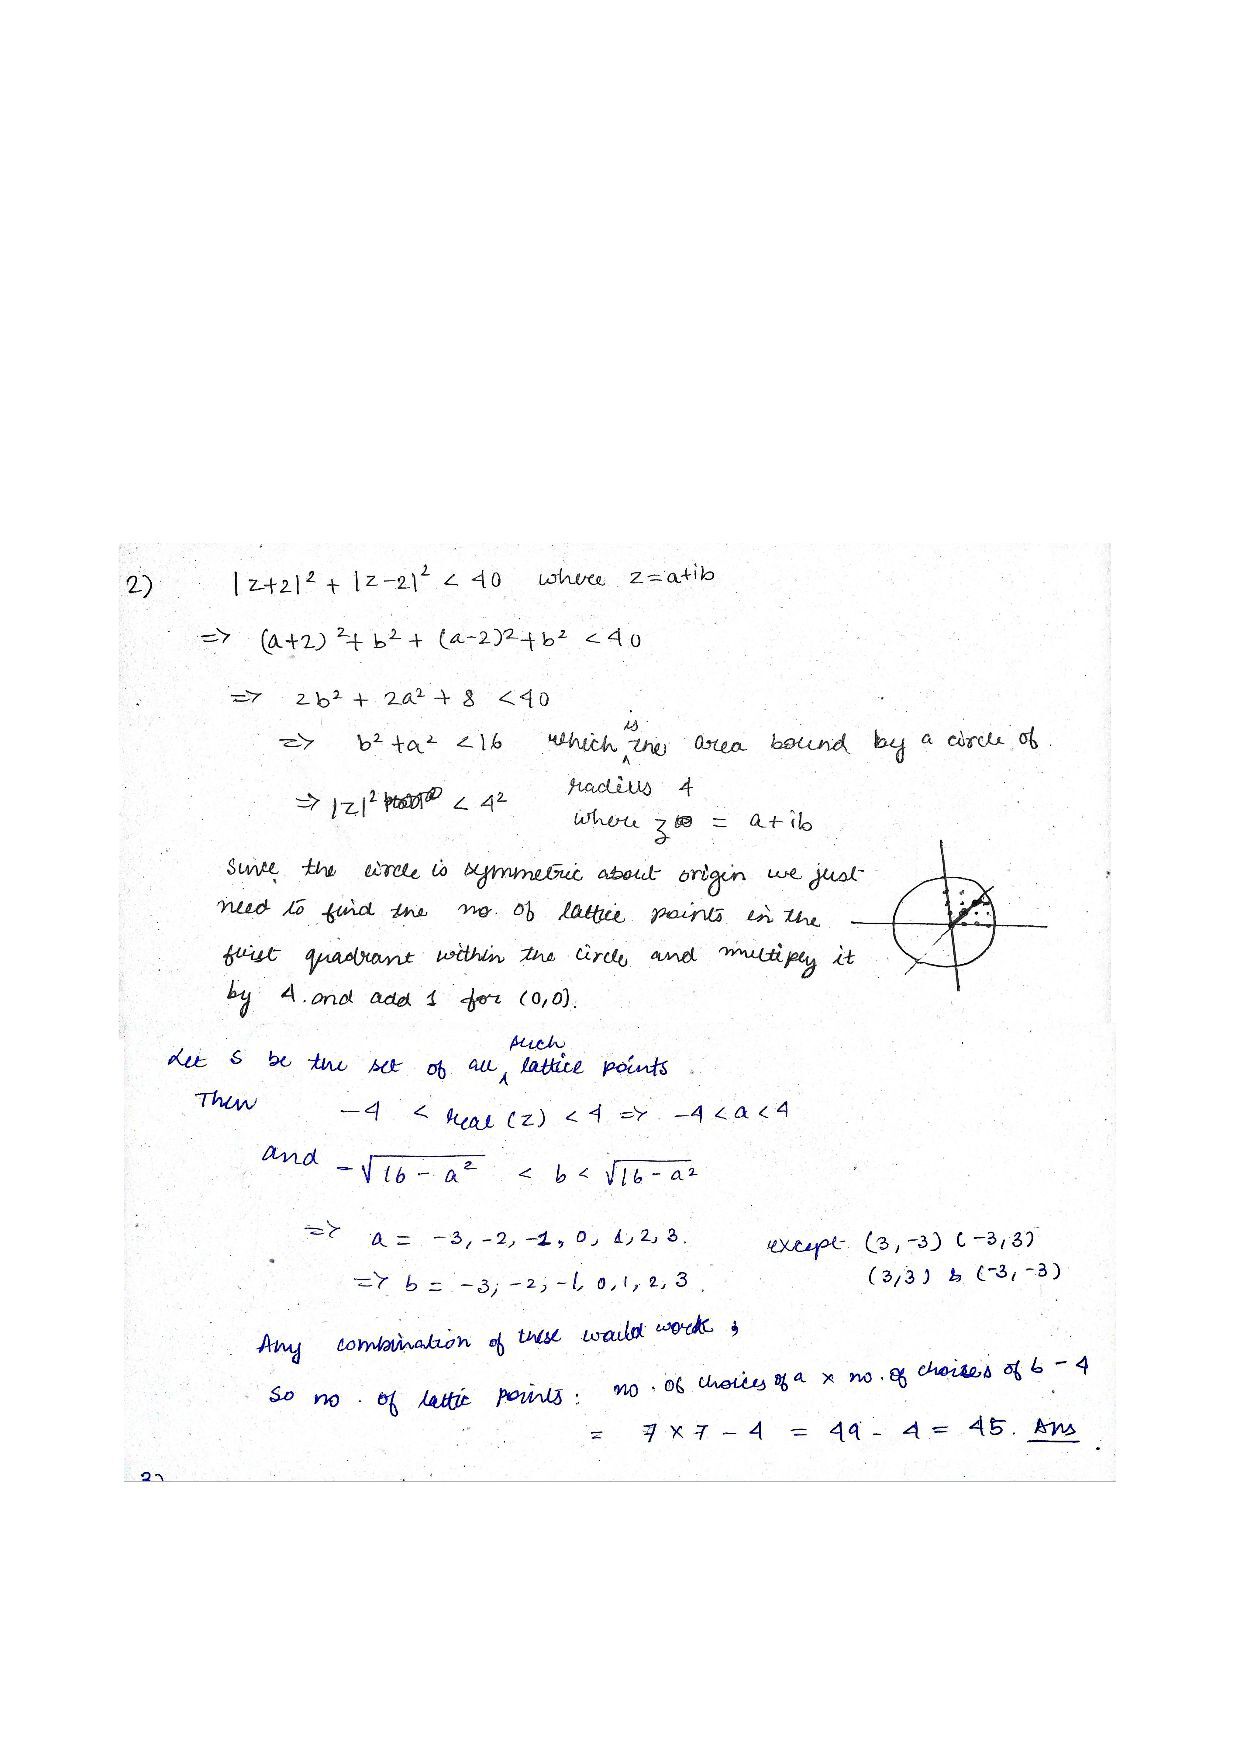 2) |z+2|² + |z-2|² < 40 where z=a+ib
=> (a+2)² + b² + (a-2)² + b² < 40
=> 2b² + 2a² + 8 < 40
=> b² + a² < 16 which is the area bound by a circle of
radius 4
=> |z|² < 4²
where z = a+ib
Since the circle is symmetric about origin we just
need to find the no. of lattice points in the
first quadrant within the circle and multiply it
by 4. and add 1 for (0,0).
Let S be the set of all such lattice points.
Then -4 < real (z) < 4 => -4 < a < 4
and -√16-a² < b < √16-a²
=> a = -3, -2, -1, 0, 1, 2, 3. except (3,-3) (-3,3)
=> b = -3, -2, -1, 0, 1, 2, 3. (3,3) & (-3,-3)
Any combination of these would work;
So no. of lattic points: no. of choices of a × no. of choises of b - 4
= 7 × 7 - 4 = 49 - 4 = 45. Ans